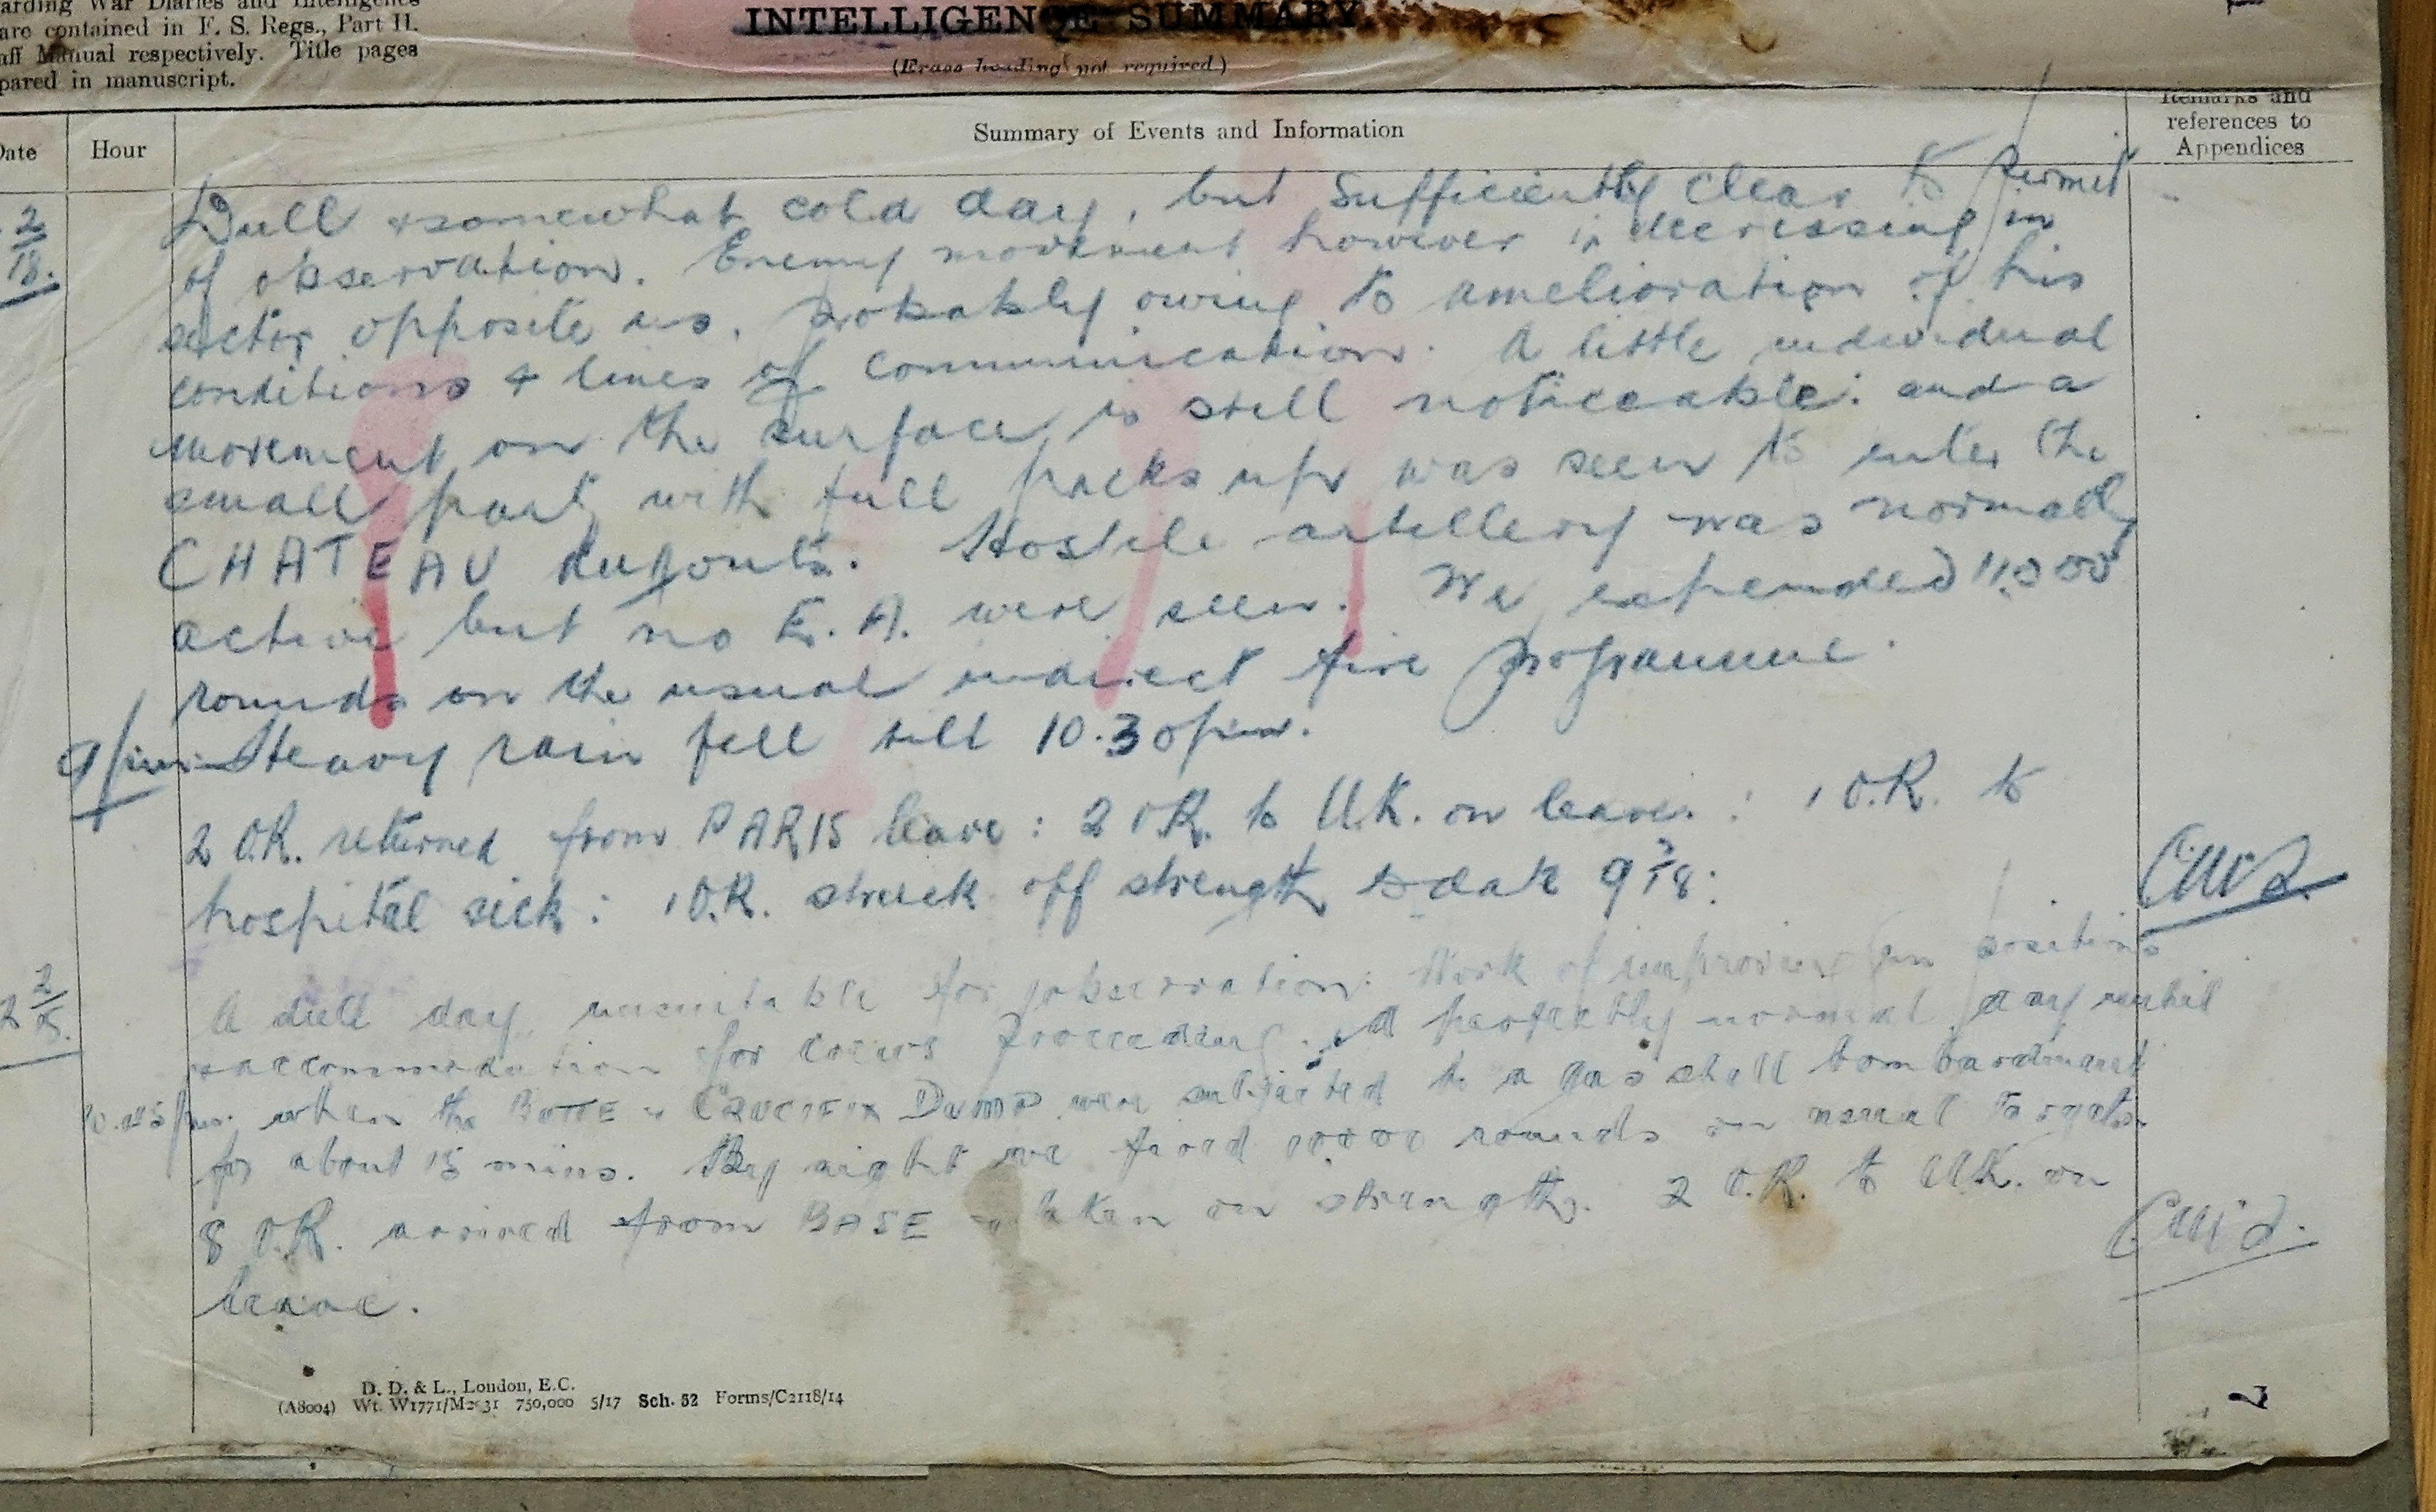 arding War Diaries and Intelligence
are contained in F. S. Regs., Part II.
aff Manual respectively. Title pages
pared in manuscript.
INTELLIGENCE SUMMARY.
(Erase heading not required.)
Date
Hour
Summary of Events and Information
Remarks and
references to
Appendices
2/18.
Dull & somewhat cold day, but sufficiently clear to permit
of observation. Enemy movement however is decreasing in
sector opposite us, probably owing to amelioration of his
conditions & lines of communication. A little individual
movement on the surface is still noticeable: and a
small party with full packs up was seen to enter the
CHATEAU dugouts. Hostile artillery was normally
active but no E.A. were seen. We expended 11,000
rounds on the usual indirect fire programme.
9pm. Heavy rain fell till 10.30pm.
2 O.R. returned from PARIS leave: 2 O.R. to U.K. on leave: 1 O.R. to
hospital sick: 1 O.R. struck off strength to date
2
A dull day unsuitable for observation. Work of improving gun positions
& accommodation for crews proceeding. A perfectly normal day until
10.45pm. when the BUTTE & CRUCIFIX DUMP were subjected to a gas shell bombardment
for about 15 mins. By night we fired 10000 rounds on usual targets.
8 O.R. arrived from BASE & taken on strength. 2 O.R. to U.K. on
leave.
D. D. & L., London, E.C.
(A8004) Wt. W1771/M2031 750,000 5/17 Sch. 52 Forms/C2118/14